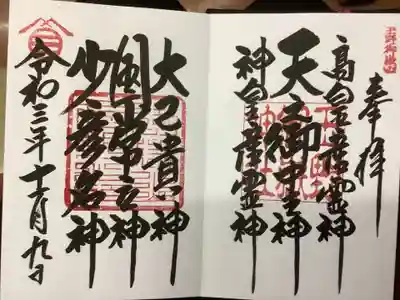 奉拝
高皇産霊神
天之御中主神
神皇産霊神
大己貴神
国常立神
少彦名神
令和三年十一月九日